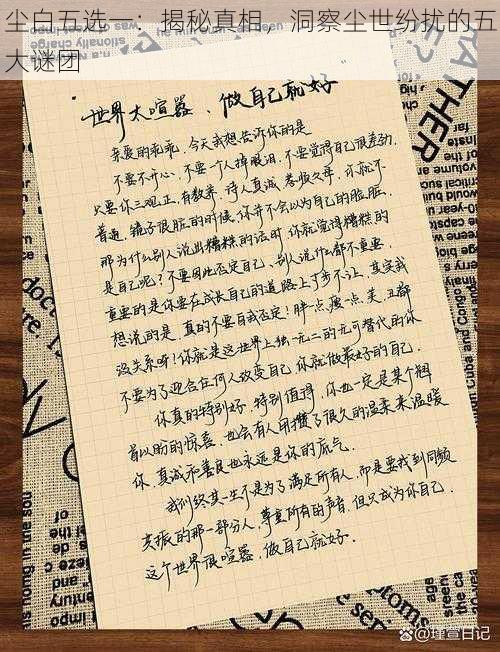 尘白五选一：揭秘真相，洞察尘世纷扰的五
大谜团
"世界太喧嚣、做自己就好"
亲爱的乖乖，今天我想告诉你的是
不要不开心，不要一个人掉眼泪，不要觉得自己很差劲，
只要你三观正，有教养，待人真诚，善恶分明，你就不
普通。镜子很脏的时候，你并不会以为自己的脸脏，
那为什么别人说出糟糕的话时，你就觉得糟糕的
是自己呢？不要因此否定自己、别人说什么都不重要
重要的是你要在成长自己的道路上寸步不让，其实我
想说的是，真的不要自我否定！胖一点，瘦一点，美、丑都
没关系呀！你就是这世界上独一无二的无可替代的你
不要为了迎合任何人改变自己，你就做最好的自己.
你真的特别好，特别值得，你也一定是某个翘
首以盼的惊喜，也会有人用攒了很久的温柔来温暖
你，真诚和善良也永远是你的底气。
我们终其一生不是为了满足所有人，而是要找到同频
共振的那一部分人，尊重所有的声音，但只成为你自己.
这个世界很喧嚣，做自己就好.
FATHER
document
Cuba and
Congo
in the sou
is of home
century
important
toms
the
@理宣日记